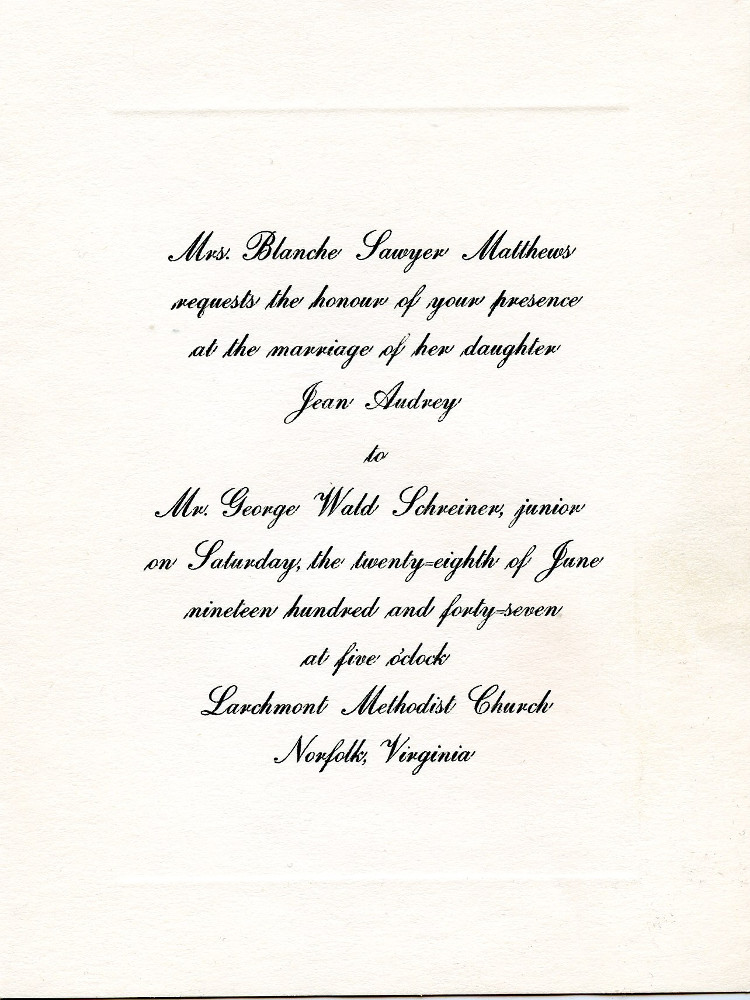 Mrs. Blanche Sawyer Matthews
requests the honour of your presence
at the marriage of her daughter
Jean Audrey
to
Mr. George Wald Schreiner, junior
on Saturday, the twenty-eighth of June
nineteen hundred and forty-seven
at five o'clock
Larchmont Methodist Church
Norfolk, Virginia